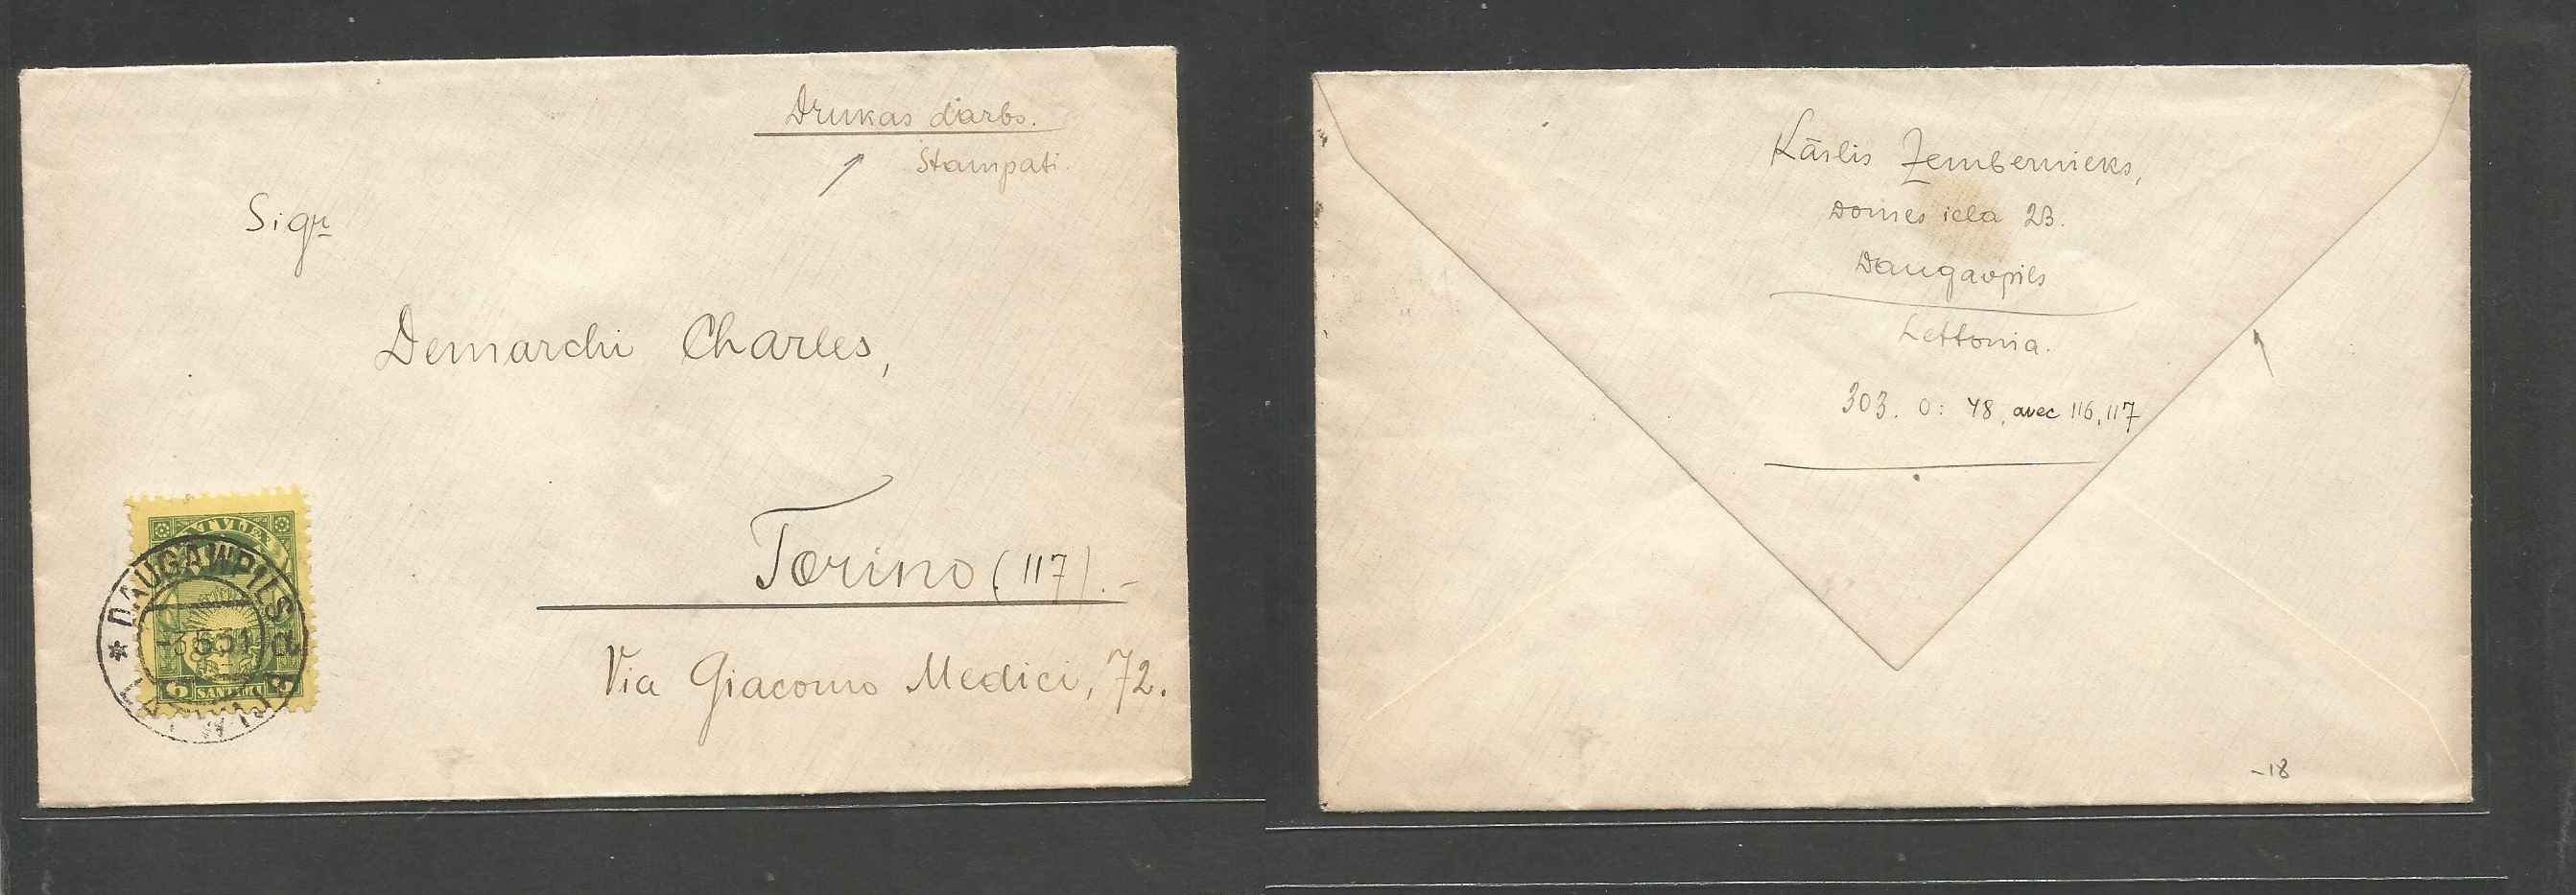 Drukas darbs.
Stampati.
Sigr
Demarchi Charles,
Torino (117).-
Via Giacomo Medici, 72.
LATVIJA
DAUGAWPILS
-3.5.31 a
6 SANTIMI 6
Kārlis Zembernieks,
Domes iela 23.
Daugavpils
Lettonia.
303. 0: 48, avec 116, 117
-18